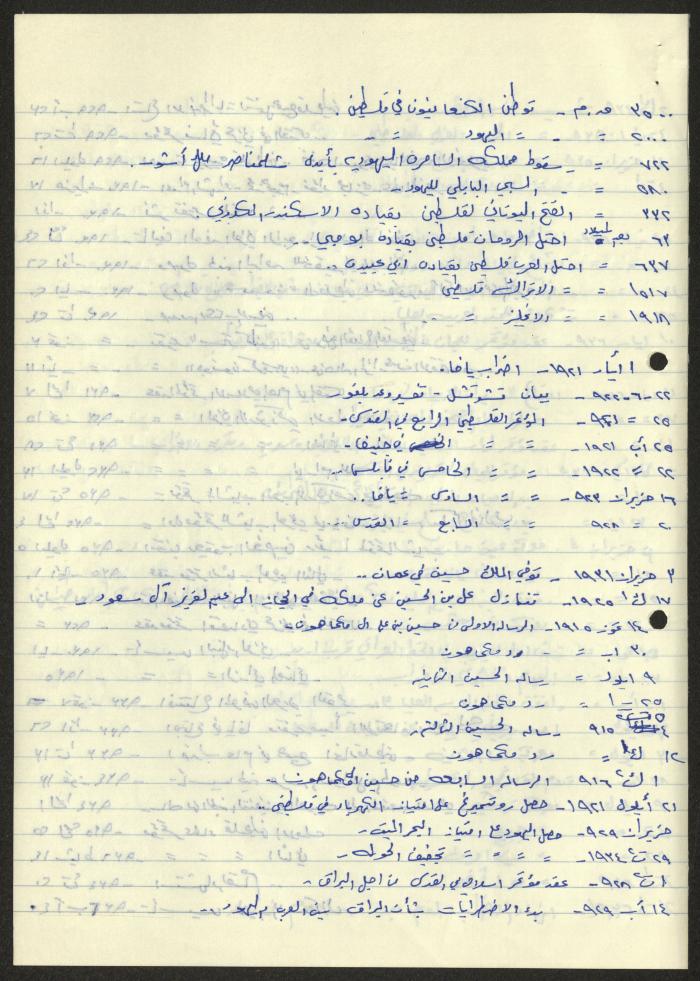 ٣٥٠٠ ق.م - توطن الكنعانيون في فلسطين
٢٠٠٠ = - = اليهود = =
٧٢٢ = - سقوط مملكة السامرة اليهودية بأيدي شلمناصر ملك أشور.
٥٨٠ = - السبي البابلي لليهود -
٣٣٢ = الفتح اليوناني لفلسطين بقيادة الاسكندر المكدوني
٦٣ احتل الرومان فلسطين بقيادة بومبي..
٦٣٧ = احتل العرب فلسطين بقيادة ابي عبيده..
١٥١٧ = = الاتراك فلسطين
١٩١٨ = = الانجليز = ..
١ أيار ١٩٢١ - اضراب يافا.
٢٢-٦-٩٢٢ - بيان تشرتشل - تفسير وعد بلفور
٢٥ = ٩٢١ - المؤتمر الفلسطيني الرابع في القدس -
٢٥ آب ١٩٢١ - = = في جنيف -
٢٢ = ١٩٢٢ - = = الخامس في نابلس..
١٦ حزيران ٩٢٣ - = = السادس = يافا..
٢٠ = ٩٢٨ - = = السابع = القدس..
٣ حزيران ١٩٣١ - توفي الملك حسين في عمان..
١٧ ك١ ١٩٢٥ - تنازل علي بن الحسين عن ملكه في الحجاز الى عبد العزيز آل سعود -
١٤ تموز ١٩١٥ - الرساله الاولى من حسين بن علي الى مكماهون -
٣٠ اب = - رد مكماهون
٩ ايلول = رساله الحسين الثانيه
٢٥ ت١ = رد مكماهون
٥ ت٢ ٩١٥ رساله الحسين الثالثه
١٢ ك١ = رد مكماهون
١ ك٢ ٩١٦ الرساله الرابعه من حسين لمكماهون -
٢١ أيلول ١٩٢١ - حصل روتمبرغ على امتياز الكهرباء في فلسطين..
حزيران ٩٢٩ - حصل اليهود على امتياز البحر الميت -
٢٩ ت٢ ١٩٣٤ - = = = = تجفيف الحوله -
١ ت٢ ٩٢٨ - عقد مؤتمر اسلامي في القدس من اجل البراق -
١٤ آب ٩٢٩ - بدء الاضطرابات بشأن البراق بين العرب واليهود..